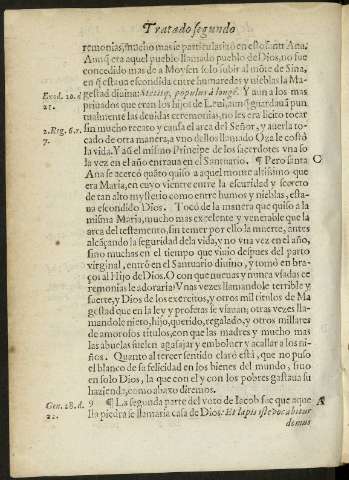 Tratado segundo
remonias, mucho mas se particularizò en esto santa Ana.
Aunq̃ era aquel pueblo llamado pueblo de Dios, no fue
concedido mas de a Moysen solo subir al mõte de Sina,
en q̃ estaua escondida entre humaredas y nieblas la Ma-
gestad diuina: Stetitq; populus à longè. Y aun a los mas
Exod. 20. d
21.
priuados que eran los hijos de Leui, aunq̃ guardauã pun
tualmente las deuidas ceremonias, no les era licito tocar
sin mucho recato y causa el arca del Señor, y auerla to-
2. Reg. 6. c.
7.
cado de otra manera, a vno dellos llamado Oze le costò
la vida. Y aũ el mismo Principe de los sacerdotes vna so
la vez en el año entraua en el Santuario. ¶ Pero santa
C
Ana se acercò quãto quiso a aquel monte altissimo que
era Maria, en cuyo vientre entre la escuridad y secreto
de tan alto mysterio como entre humos y nieblas, esta-
ua escondido Dios. Tocò de la manera que quiso a la
misma Maria, mucho mas excelente y venerable que la
arca del testamento, sin temer por ello la muerte, antes
alcãçando la seguridad de la vida, y no vna vez en el año,
sino muchas en el tiempo que viuio despues del parto
virginal, entrò en el Santuario diuino, y tomò en bra-
ços al Hijo de Dios. O con que nueuas y nunca vsadas ce
remonias le adoraria! Vnas vezes llamandole terrible y
fuerte, y Dios de los exercitos, y otros mil titulos de Ma
gestad que en la ley y profetas se vsauan; otras vezes lla-
mandole nieto, hijo, querido, regalado, y otros millares
de amorosos titulos, con que las madres y mucho mas
las abuelas suelen agasajar y embouecer y acallar a los ni-
ños. Quanto al tercer sentido claro està, que no puso
el blanco de su felicidad en los bienes del mundo, sino
en solo Dios, la que con el y con los pobres gastaua su
hazienda, como abaxo diremos.
9 ¶ La segunda parte del voto de Iacob fue que aque
Gen. 28. d.
22.
lla piedra se llamaria casa de Dios: Et lapis iste vocabitur
domus